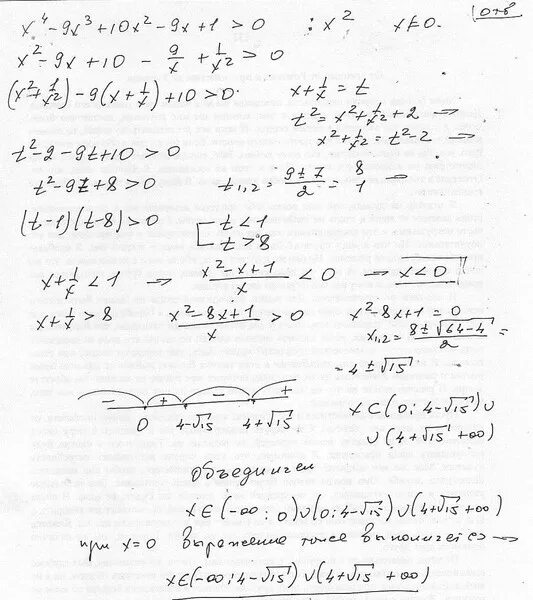 x⁴-9x³+10x²-9x+1 > 0 : x² x≠0.
x²-9x+10 - 9/x + 1/x² > 0
(x²+1/x²)-9(x+1/x)+10>0. x+1/x = t
t² = x²+1/x²+2 →
x²+1/x² = t²-2 →
t²-2-9t+10 > 0
t²-9t+8 > 0 t₁,₂ = (9±7)/2 = 8 1 →
(t-1)(t-8)>0 [ t<1
t>8
x+1/x < 1 → (x²-x+1)/x < 0 → x<0
x+1/x > 8 (x²-8x+1)/x > 0 x²-8x+1=0
x₁,₂ = (8±√(64-4))/2 =
= 4±√15
- + - +
0 4-√15 4+√15
x⊂(0; 4-√15)∪
∪(4+√15 +∞)
Объединяем
x∈(-∞; 0)∪(0; 4-√15)∪(4+√15 +∞)
при x=0 выражение тоже выполняется →
x∈(-∞; 4-√15)∪(4+√15 +∞)